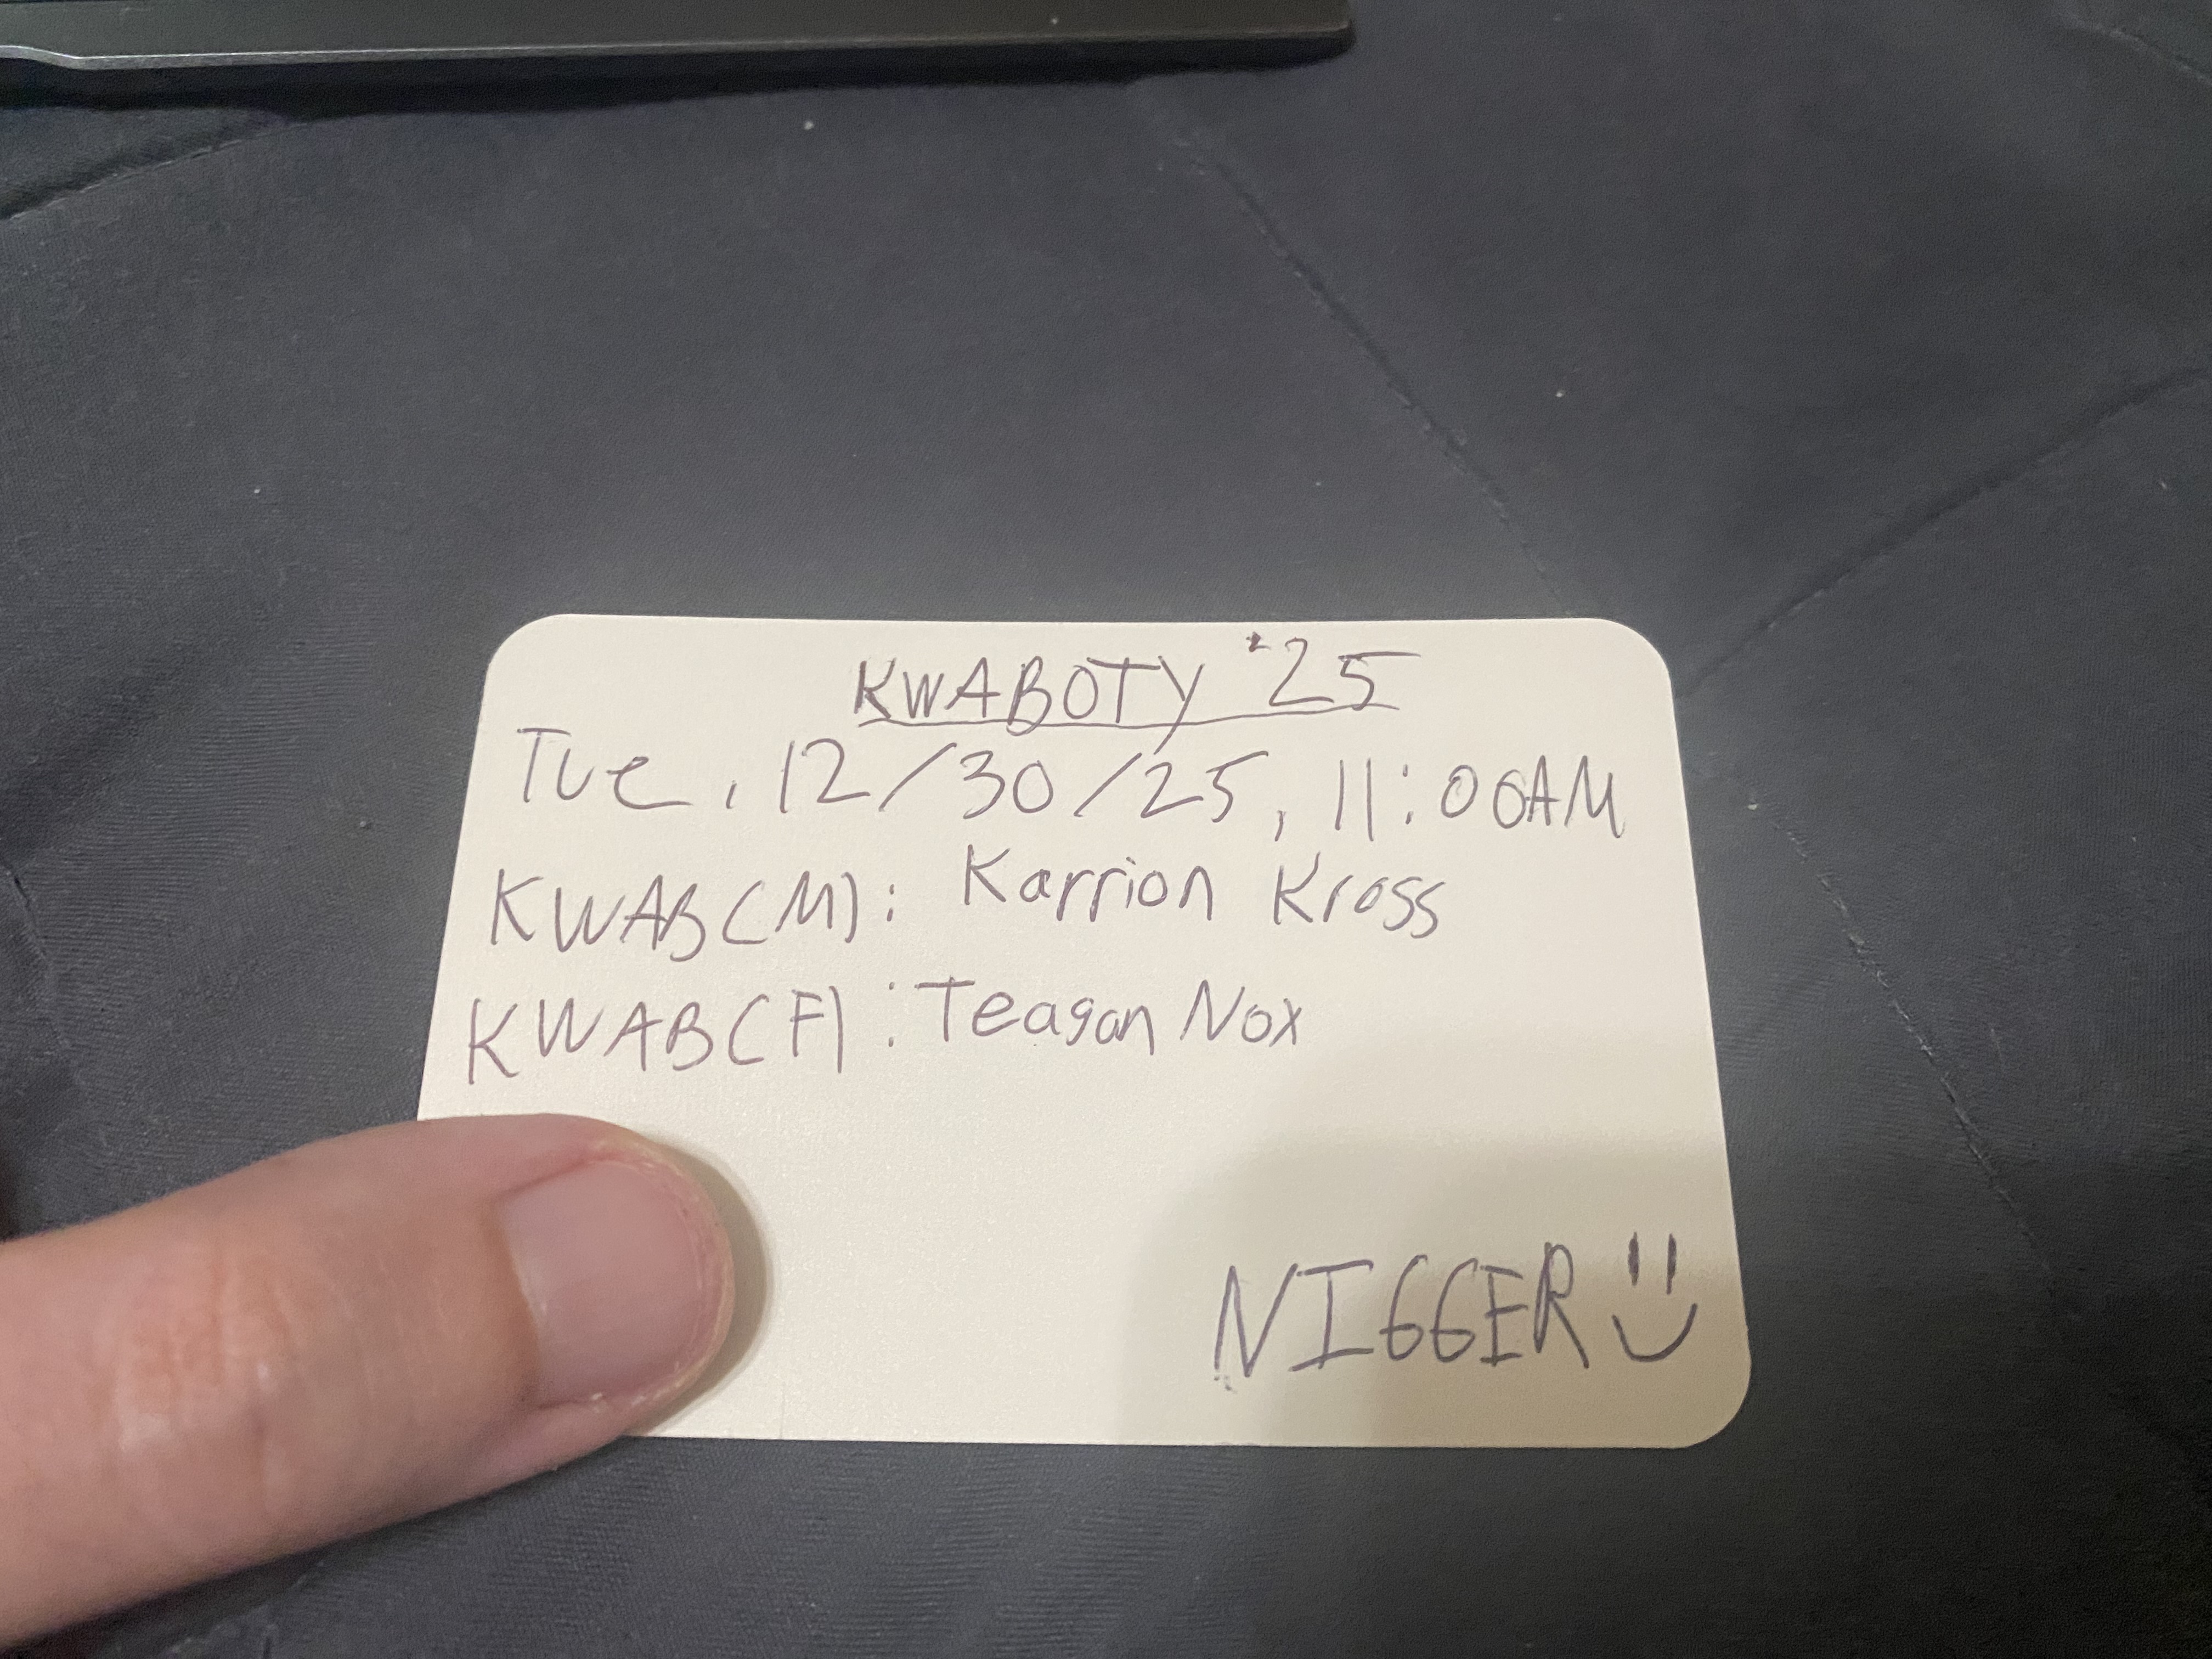 KWABOTY '25
Tue, 12/30/25, 11:00AM
KWAB(M): Karrion Kross
KWAB(F): Teagan Nox
NIGGER